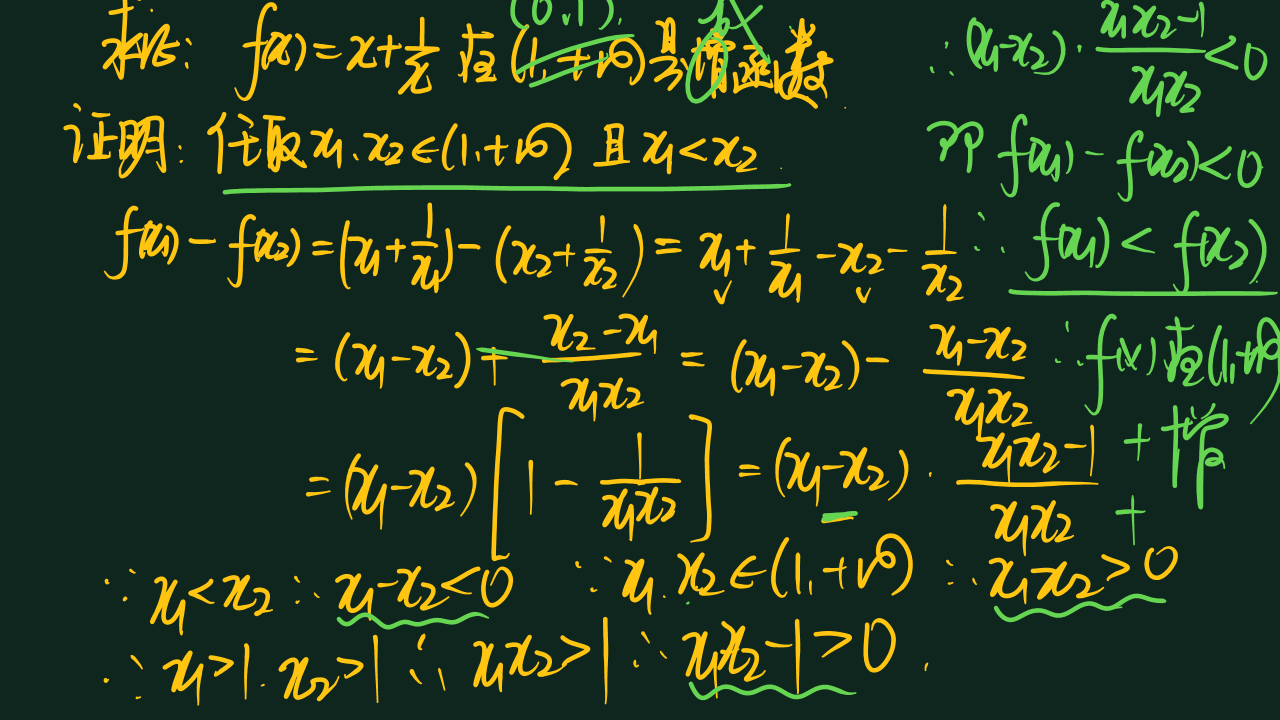 (0,1).
求证: f(x)=x+1/x 在(1,+∞)是增函数
证明: 任取x₁、x₂∈(1,+∞) 且x₁<x₂
f(x₁)-f(x₂)=(x₁+1/x₁)-(x₂+1/x₂)=x₁+1/x₁-x₂-1/x₂
=(x₁-x₂)+(x₂-x₁)/(x₁x₂)=(x₁-x₂)-(x₁-x₂)/(x₁x₂)
=(x₁-x₂)[1-1/(x₁x₂)]=(x₁-x₂)·(x₁x₂-1)/(x₁x₂) + +
∵x₁<x₂ ∴x₁-x₂<0 ∵x₁.x₂∈(1,+∞) ∴x₁x₂>0
∵x₁>1.x₂>1 ∴x₁x₂>1 ∴x₁x₂-1>0.
∴(x₁-x₂)·(x₁x₂-1)/(x₁x₂)<0
即f(x₁)-f(x₂)<0
∴f(x₁)<f(x₂)
∴f(x)在(1,+∞)
增